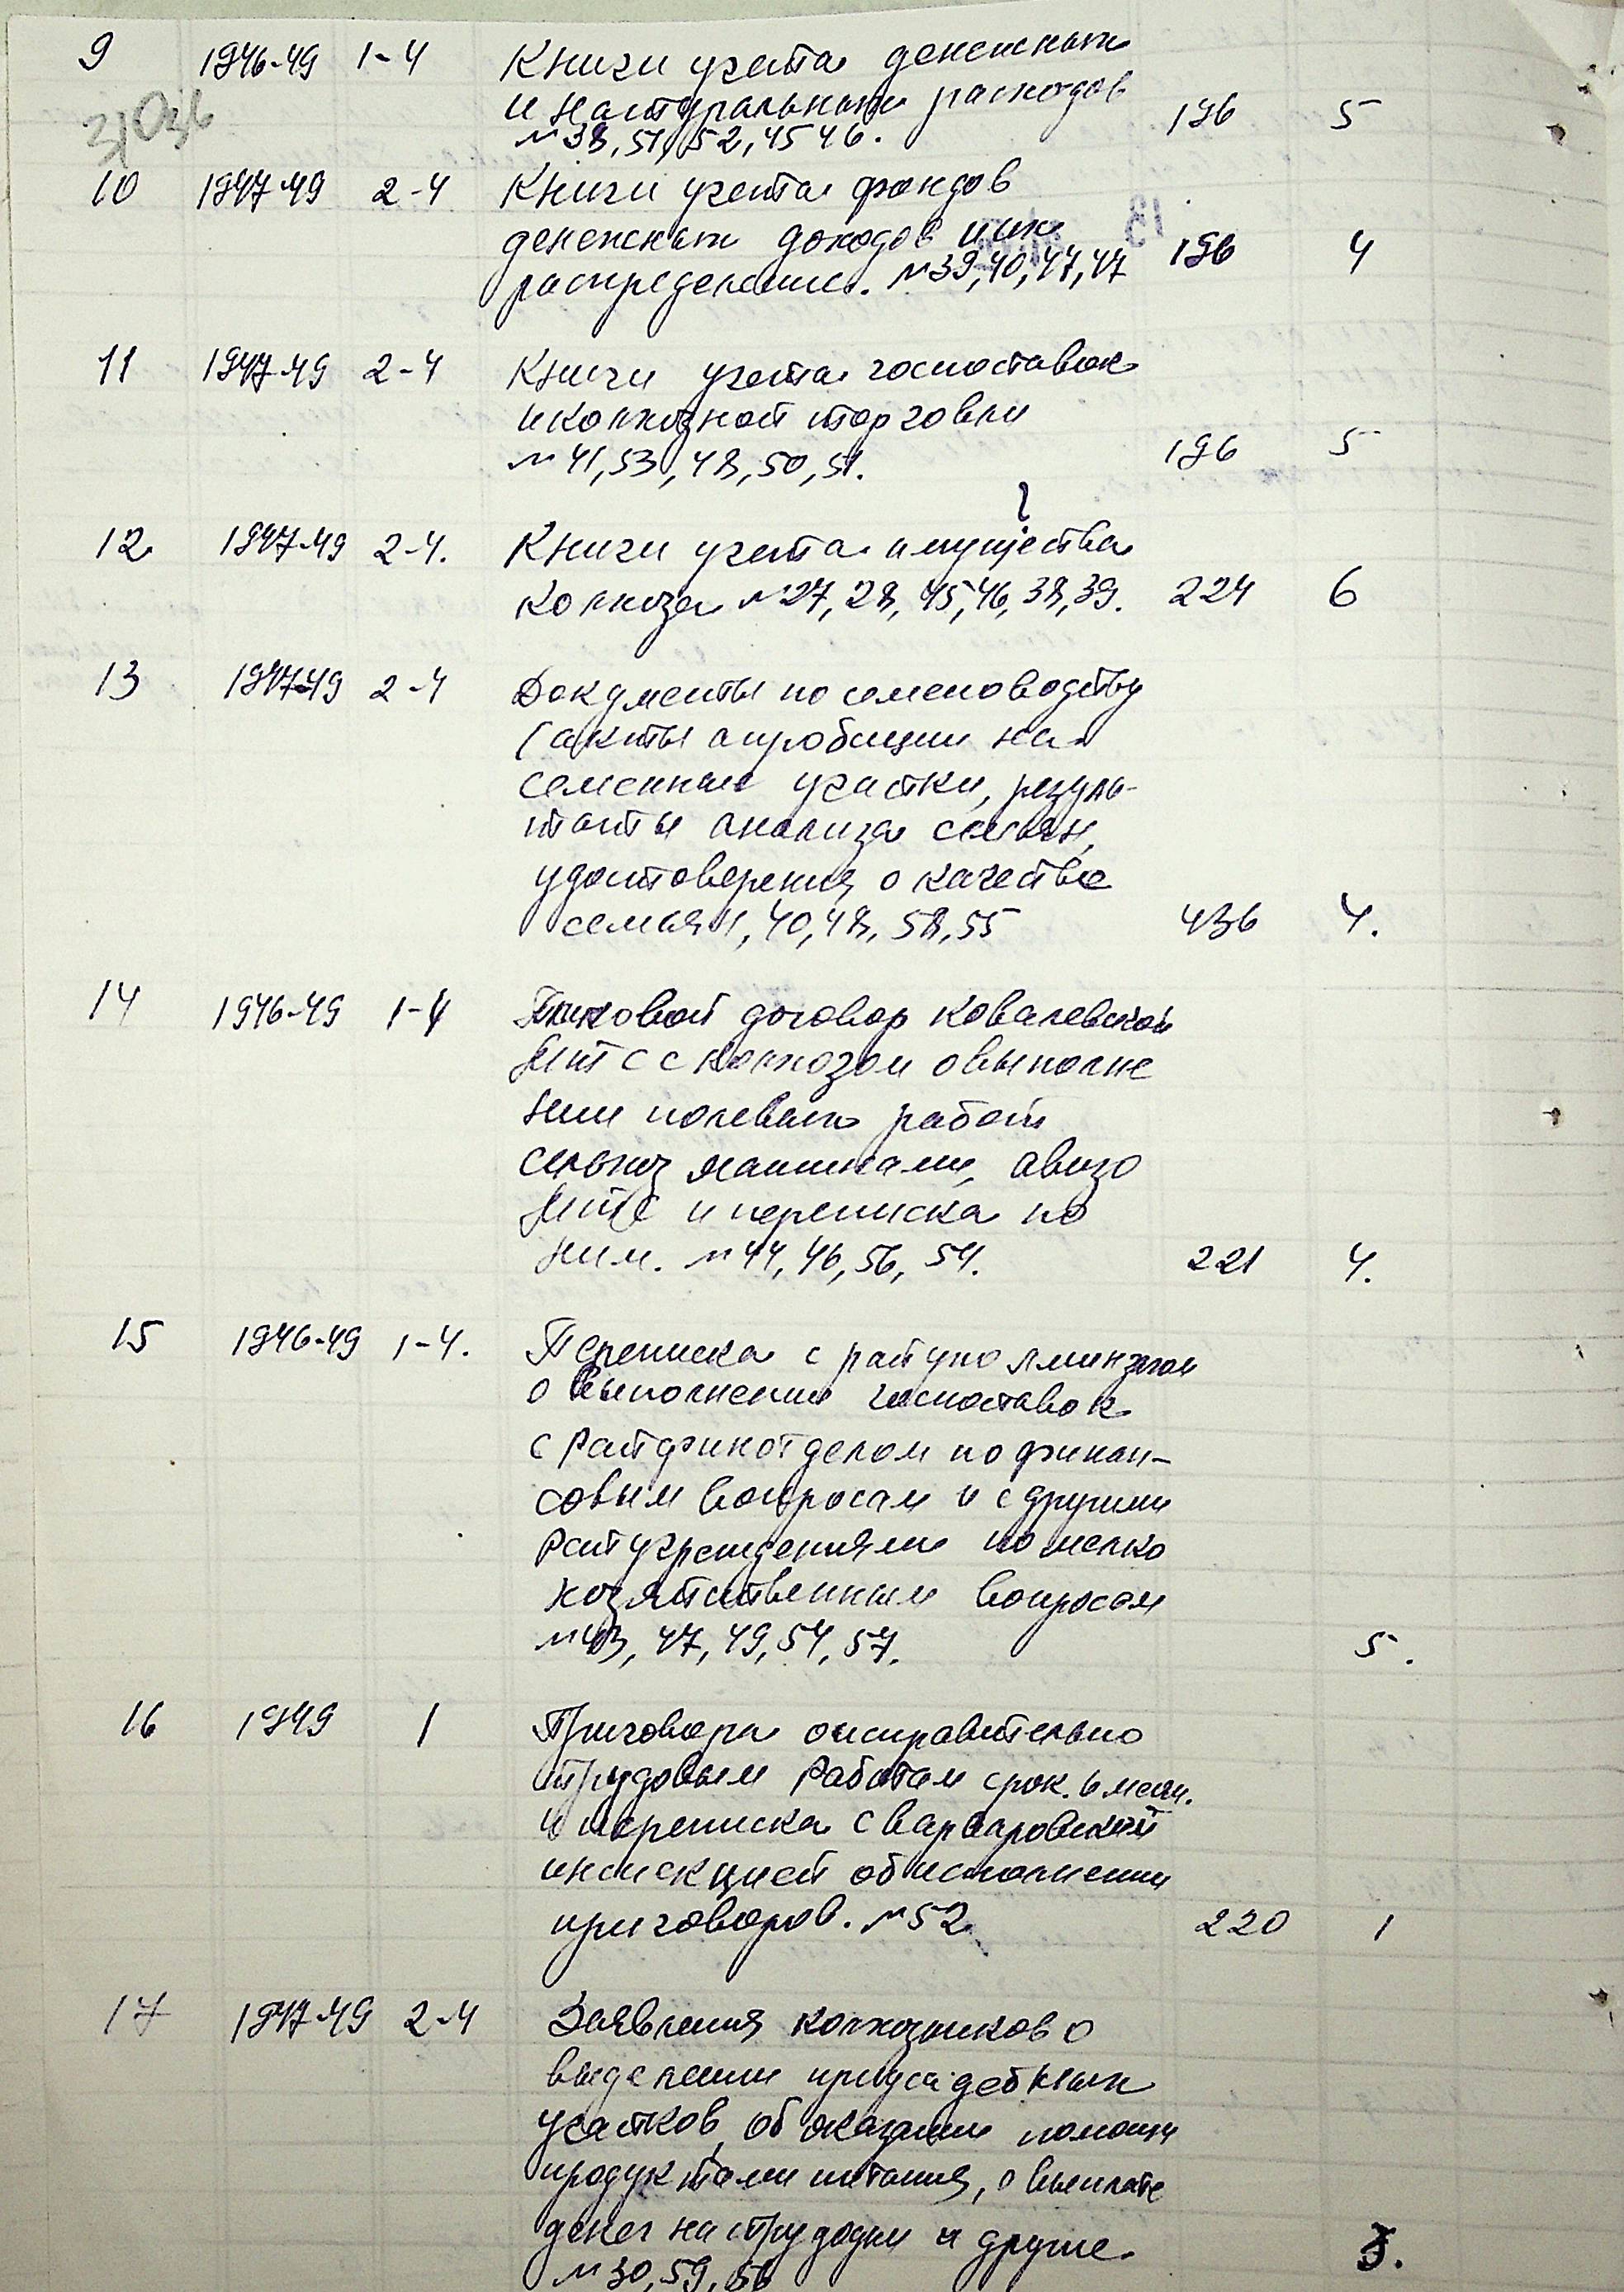 9 1946-49 1-4 Книги учета денежных
и натуральных расходов 196 5
№ 38, 51, 52, 45 46.
10 1947-49 2-4 Книги учета фондов
денежных доходов и их 196 4
распределение. №39, 40, 47, 47
11 1947-49 2-4 Книги учета госпоставок
и колхозной торговли
№ 41, 53, 48, 50, 51. 196 5
12 1947-49 2-4. Книги учета имущества
колхоза №27, 28, 45, 46, 38, 39. 224 6
13 1947-49 2-4 Документы по семеноводству
(акты апробации на
семенные участки, резуль-
таты анализа семян,
удостоверения о качестве
семян, 40, 48, 58, 55 436 4.
14 1946-49 1-4 договор Ковалевской
МТС с колхозом о выполне
нии полевых работ
сельхоз машинами, авизо
МТС и переписка по
ним. №44, 46, 56, 54. 221 4.
15 1946-49 1-4. Переписка с
о выполнении госпоставок
с Райфинотделом по финан-
совым вопросам и с другими
Райучреждениями по мелко
хозяйственным вопросам
№43, 47, 49, 54, 57. 5.
16 1949 1 Приговора о исправительно
трудовым работам срок. 6 меся.
и переписка с Варваровской
инспекцией об исполнении
приговоров. №52 220 1
17 1947-49 2-4 Заявления колхозников о
выделении приусадебных
участков, об оказании помощи
продуктами питания, о выплате
денег на трудодни и другие.
№30, 59, 56 3.